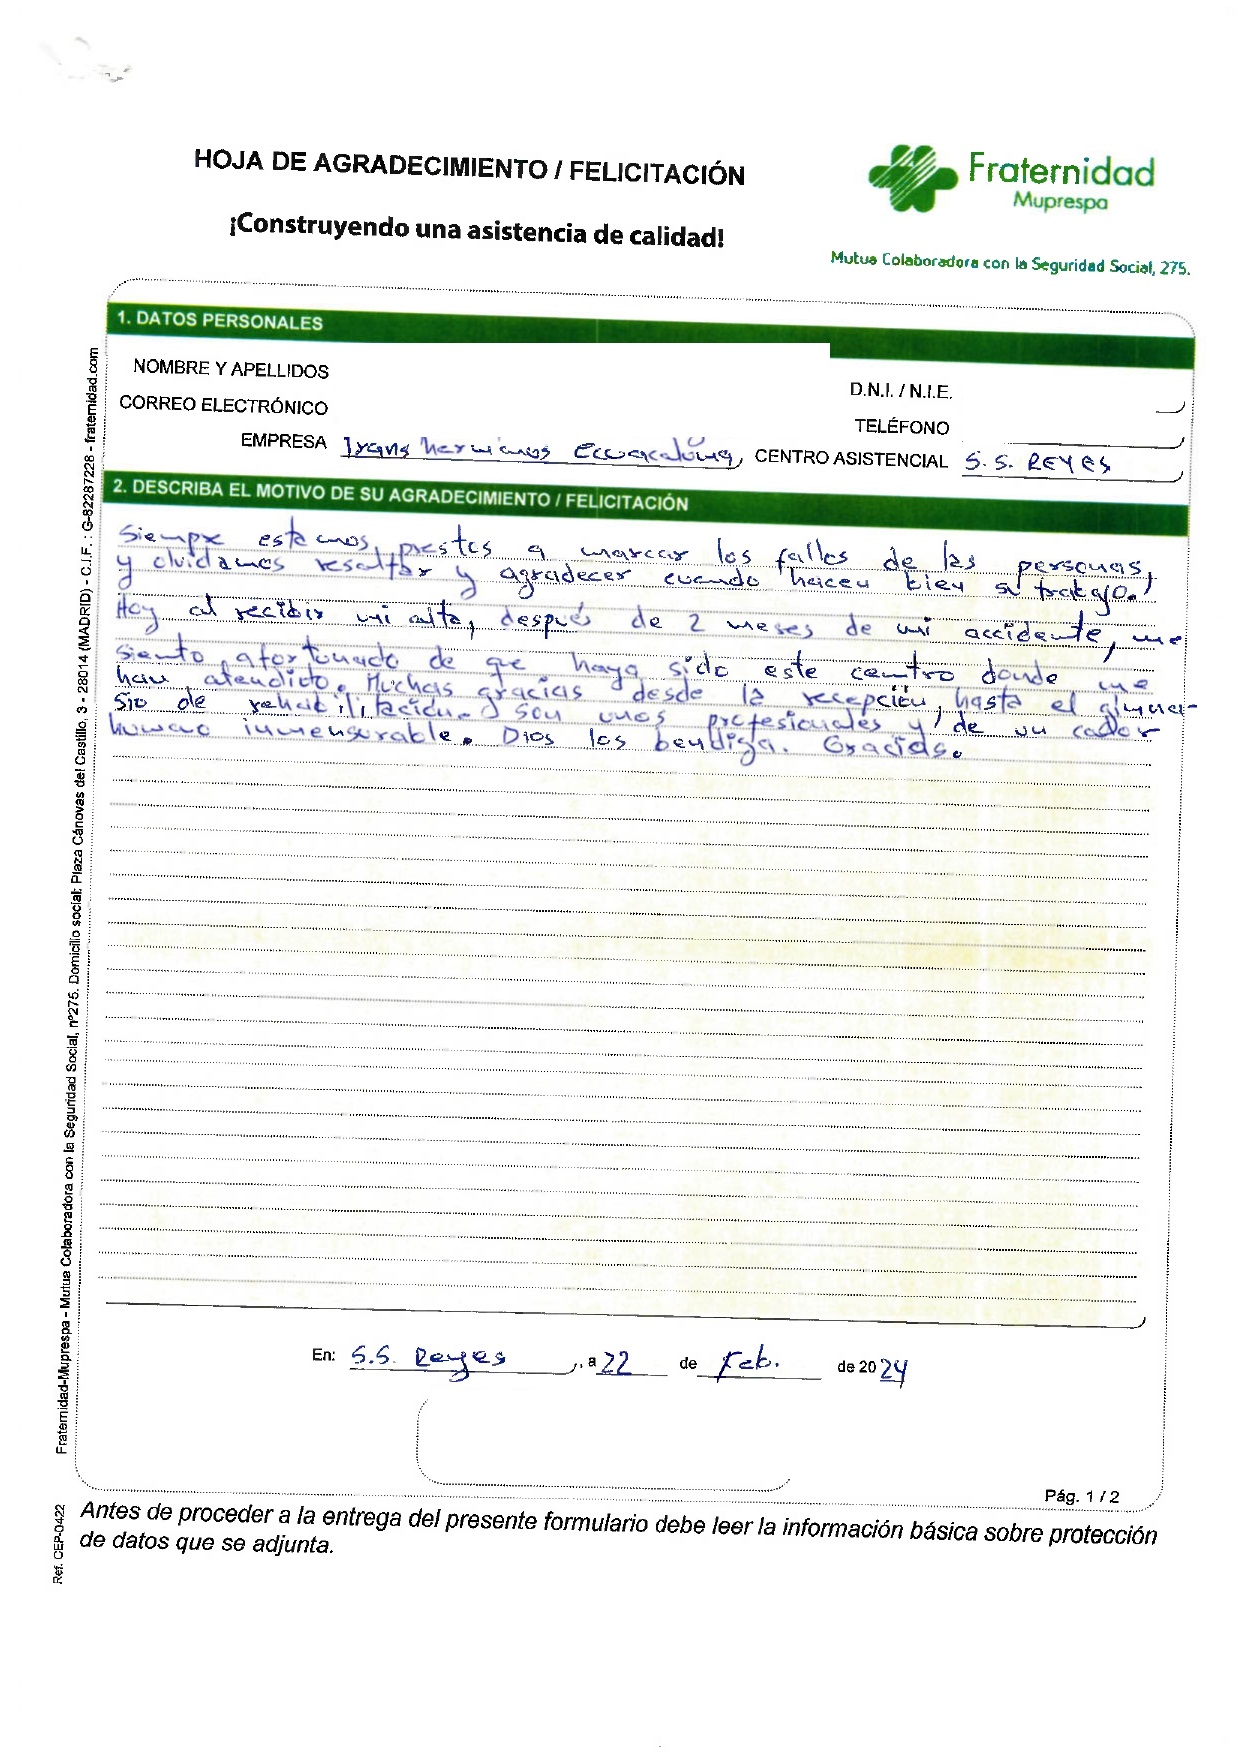 HOJA DE AGRADECIMIENTO / FELICITACIÓN
¡Construyendo una asistencia de calidad!
Fraternidad
Muprespa
Mutua Colaboradora con la Seguridad Social, 275.
1. DATOS PERSONALES
NOMBRE Y APELLIDOS
D.N.I. / N.I.E.
CORREO ELECTRÓNICO
TELÉFONO
EMPRESA Trans hermanos
CENTRO ASISTENCIAL S. S. REYES
2. DESCRIBA EL MOTIVO DE SU AGRADECIMIENTO / FELICITACIÓN
Siempre estamos prestos a marcar los fallos de las personas,
y olvidamos resaltar y agradecer cuando hacen bien su trabajo.
Hoy al recibir mi alta, después de 2 meses de mi accidente, me
siento afortunado de que haya sido este centro donde me
han atendido. Muchas gracias desde la recepción, hasta el gimna-
sio de rehabilitación. Son unos profesionales y de un calor
humano inmensurable. Dios los bendiga. Gracias.
En: S.S. Reyes, a 22 de Feb. de 2024
Pág. 1 / 2
Antes de proceder a la entrega del presente formulario debe leer la información básica sobre protección
de datos que se adjunta.
Fraternidad-Muprespa - Mutua Colaboradora con la Seguridad Social, nº275. Domicilio social: Plaza Cánovas del Castillo, 3 - 28014 (MADRID) - C.I.F. : G-82287228 - fraternidad.com
Ref. CEP-0422